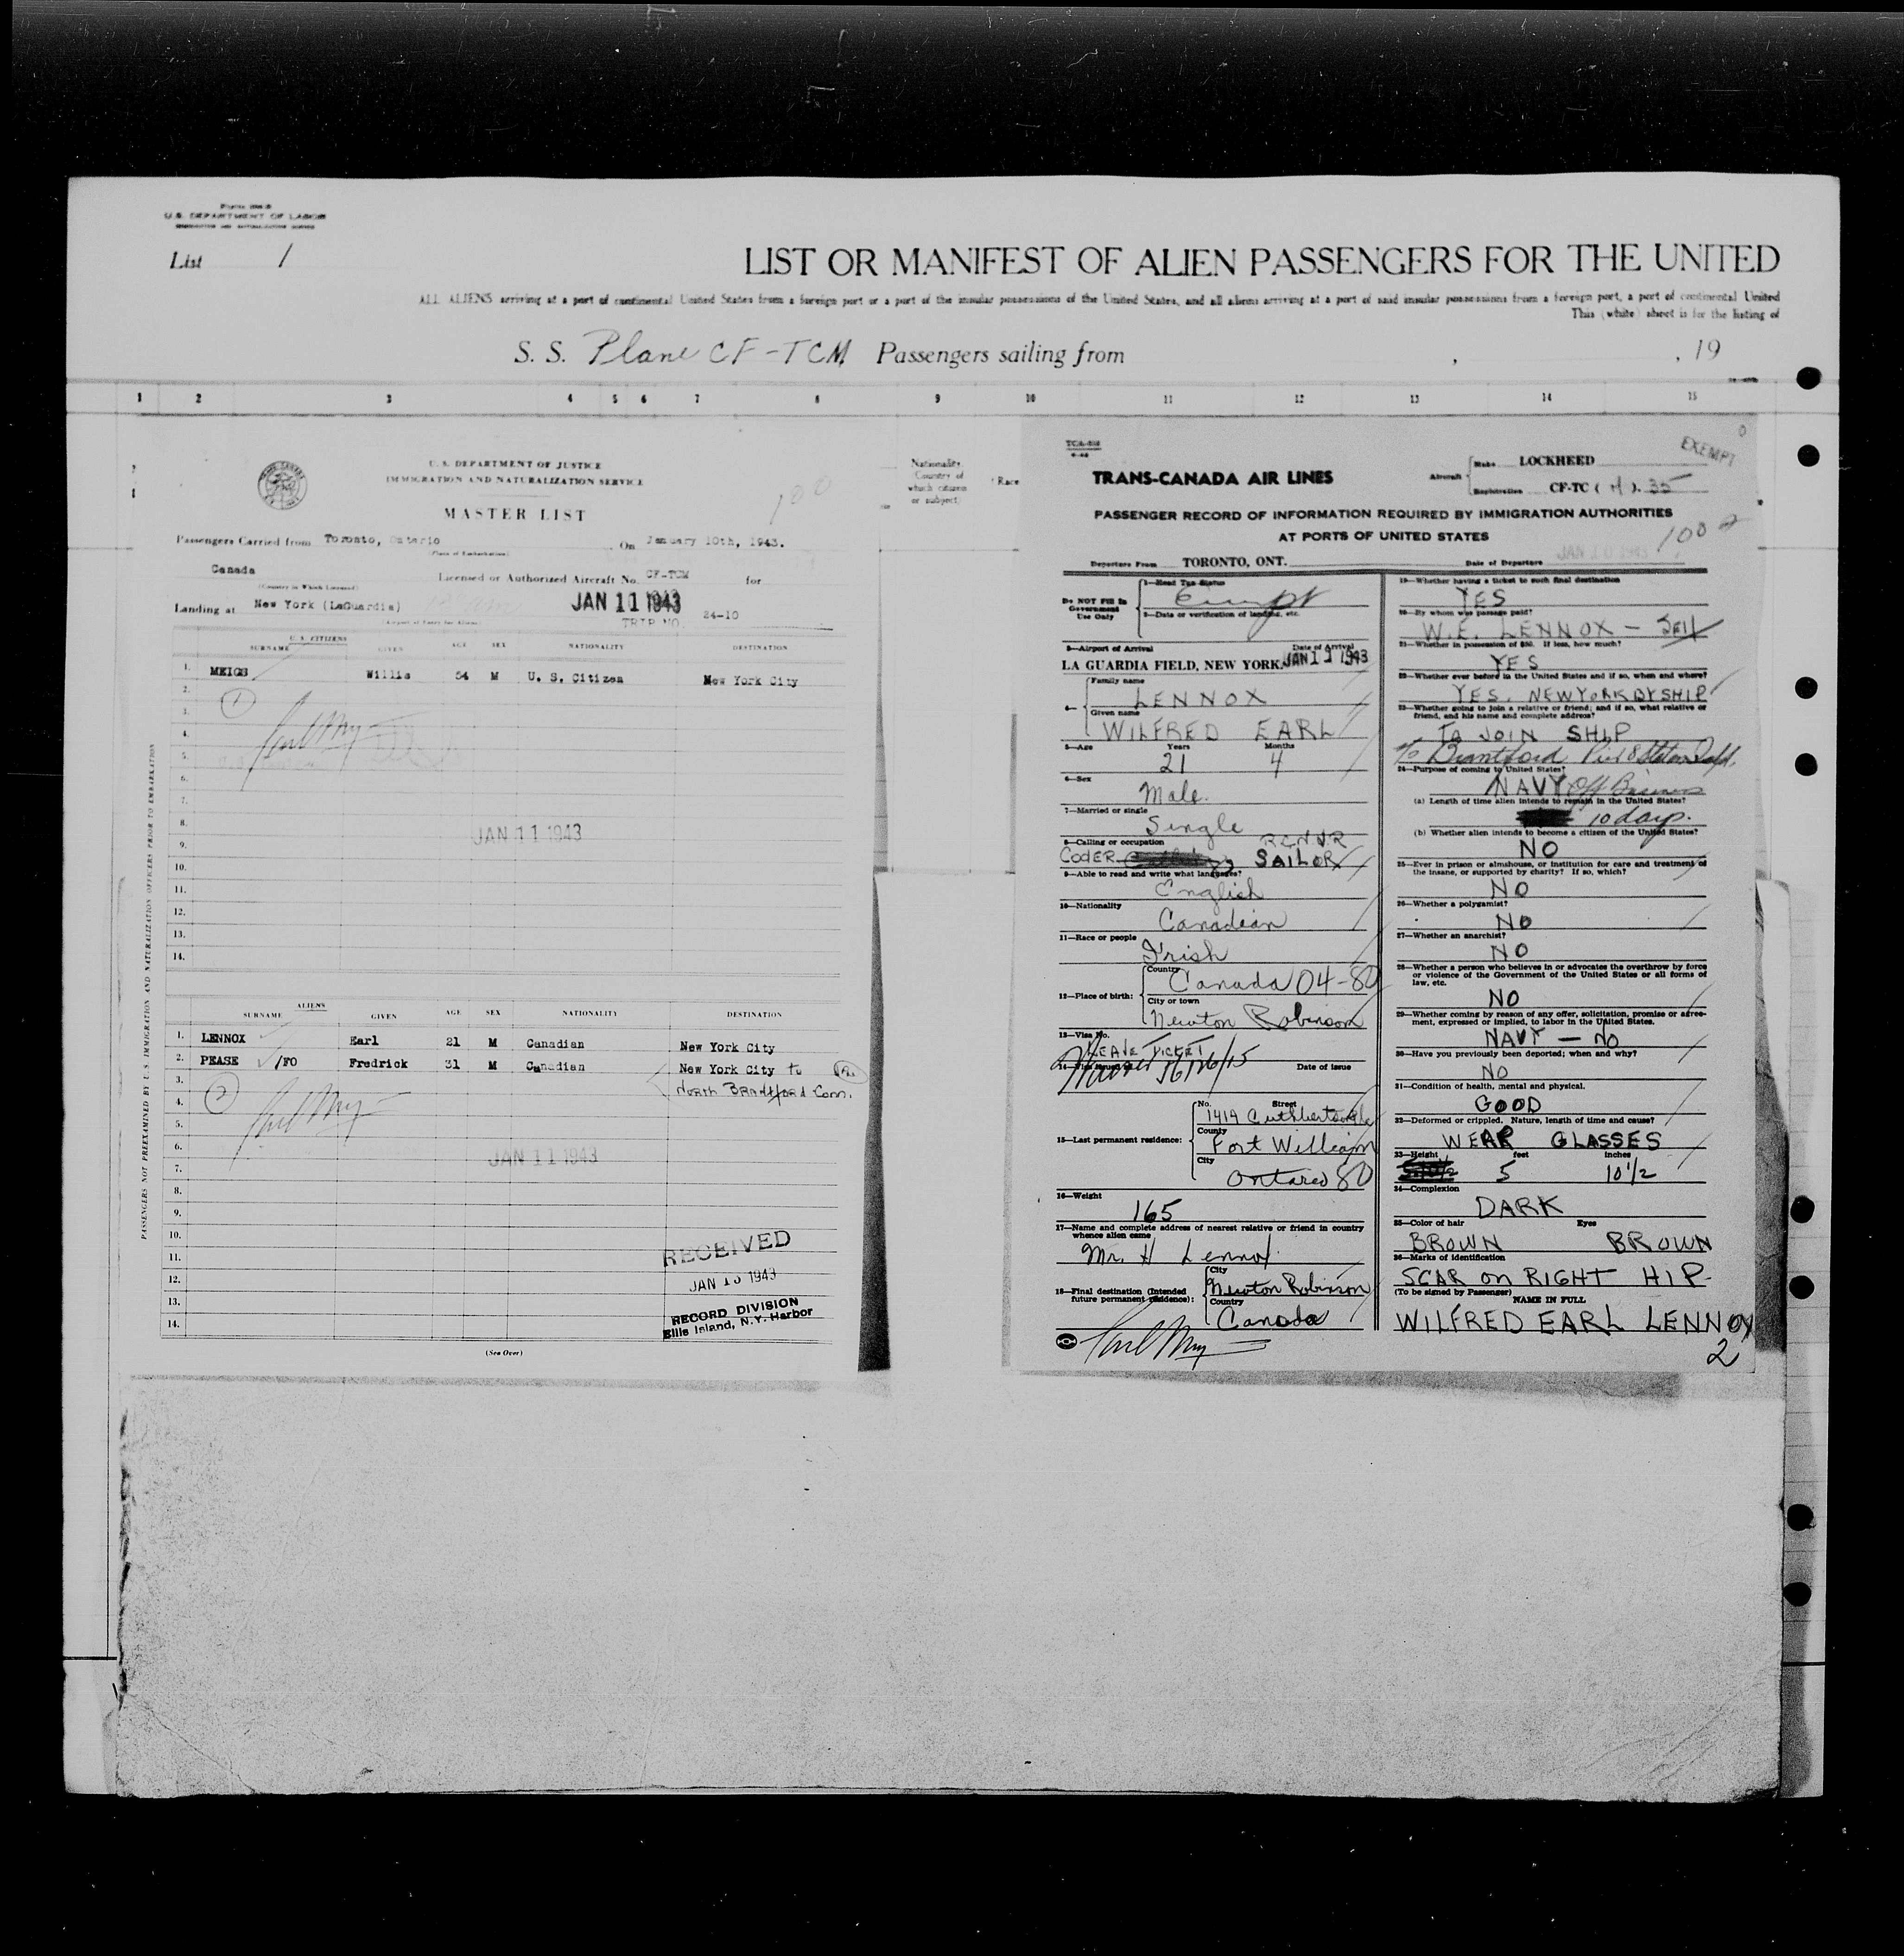 U.S. DEPARTMENT OF LABOR
IMMIGRATION AND NATURALIZATION SERVICE
List 1
LIST OR MANIFEST OF ALIEN PASSENGERS FOR THE UNITED
ALL ALIENS arriving at a port of continental United States from a foreign port or a port of the insular possessions of the United States, and all aliens arriving at a port of said insular possessions from a foreign port, a port of continental United
This (white) sheet is for the listing of
S. S. Plane CF-TCM Passengers sailing from , , 19
1 2 3 4 5 6 7 8 9 10 11 12 13 14 15
U. S. DEPARTMENT OF JUSTICE
IMMIGRATION AND NATURALIZATION SERVICE
100
MASTER LIST
Passengers Carried from Toronto, Ontario On January 10th, 1943.
(Place of Embarkation)
Canada Licensed or Authorized Aircraft No. CF-TCM for
(Country in Which Licensed)
Landing at New York (LaGuardia) JAN 11 1943 24-10
(Airport of Entry for Aliens) TRIP NO
U. S. CITIZENS
SURNAME GIVEN AGE SEX NATIONALITY DESTINATION
1. MEIGS Willis 54 M U. S. Citizen New York City
2. 1
3.
4.
5.
6.
7.
8. JAN 11 1943
9.
10.
11.
12.
13.
14.
ALIENS
SURNAME GIVEN AGE SEX NATIONALITY DESTINATION
1. LENNOX Earl 21 M Canadian New York City
2. PEASE /FO Fredrick 31 M Canadian New York City to
3. North Brantford Conn.
4. 2
5.
6.
7. JAN 11 1943
8.
9.
10.
11. RECEIVED
12. JAN 13 1943
13. RECORD DIVISION
14. Ellis Island, N.Y. Harbor
(See Over)
PASSENGERS NOT PREEXAMINED BY U.S. IMMIGRATION AND NATURALIZATION OFFICERS PRIOR TO EMBARKATION
Nationality.
Country of
which citizen
or subject)
Race
EXEMPT
TRANS-CANADA AIR LINES
Aircraft Make LOCKHEED
Registration CF-TC (M). 35
PASSENGER RECORD OF INFORMATION REQUIRED BY IMMIGRATION AUTHORITIES
AT PORTS OF UNITED STATES
100 2
Departure From TORONTO, ONT. Date of Departure JAN 10 1943
Do NOT Fill In Government Use Only
1—Head Tax Status
Exempt
2—Date or verification of landing, etc.
3—Airport of Arrival Date of Arrival
LA GUARDIA FIELD, NEW YORK. JAN 11 1943
4— Family name
LENNOX
Given name
WILFRED EARL
5—Age Years Months
21 4
6—Sex
Male.
7—Married or single
Single
8—Calling or occupation RCNVR
CODER SAILOR
9—Able to read and write what languages?
English
10—Nationality
Canadian
11—Race or people
Irish
12—Place of birth: Country
Canada 04-80
City or town
Newton Robinson
13—Visa No.
LEAVE TICKET
Date of issue
15—Last permanent residence: No. Street
1414 Cuthbertson
County
Fort William
City
Ontario 80
16—Weight
165
17—Name and complete address of nearest relative or friend in country
whence alien came
Mr. H Lennox
18—Final destination (Intended
future permanent residence):
City
Newton Robinson
Country
Canada
19—Whether having a ticket to such final destination
YES
20—By whom was passage paid?
W.E. LENNOX — Self
21—Whether in possession of $50. If less, how much?
YES
22—Whether ever before in the United States and if so, when and where?
YES. NEW YORK BY SHIP
23—Whether going to join a relative or friend; and if so, what relative or
friend, and his name and complete address?
TO JOIN SHIP
Brantford Pier 8 Staten Isld.
24—Purpose of coming to United States?
NAVY Off Business
(a) Length of time alien intends to remain in the United States?
10 days.
(b) Whether alien intends to become a citizen of the United States?
NO
25—Ever in prison or almshouse, or institution for care and treatment of
the insane, or supported by charity? If so, which?
NO
26—Whether a polygamist?
NO
27—Whether an anarchist?
NO
28—Whether a person who believes in or advocates the overthrow by force
or violence of the Government of the United States or all forms of
law, etc.
NO
29—Whether coming by reason of any offer, solicitation, promise or agree-
ment, expressed or implied, to labor in the United States.
NAVY — NO
30—Have you previously been deported; when and why?
NO
31—Condition of health, mental and physical.
GOOD
32—Deformed or crippled. Nature, length of time and cause?
WEAR GLASSES
33—Height feet inches
5 10 1/2
34—Complexion
DARK
35—Color of hair Eyes
BROWN BROWN
36—Marks of identification
SCAR on RIGHT HIP
(To be signed by Passenger)
NAME IN FULL
WILFRED EARL LENNOX
2